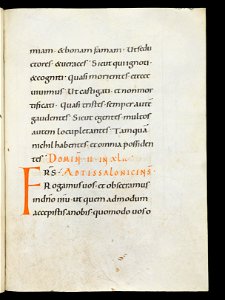 miam · & bonam famam · Ut sedu
ctores · & veraces · Sicut qui ignoti ·
& cogniti · Quasi morientes · et ecce
vivimus · Ut castigati · et non mor
tificati · Quasi tristes · semper aute
gaudentes · Sicut egentes · multos
autem locupletantes · Tamqua
nichil habentes · et omnia possiden
tes · DOMIN · II · IN XL
FRS · AD TESSALONICENS
Rogamus vos · et obsecramus
in dno ihu · ut quem admodum
accepistis a nobis · quomodo vos o